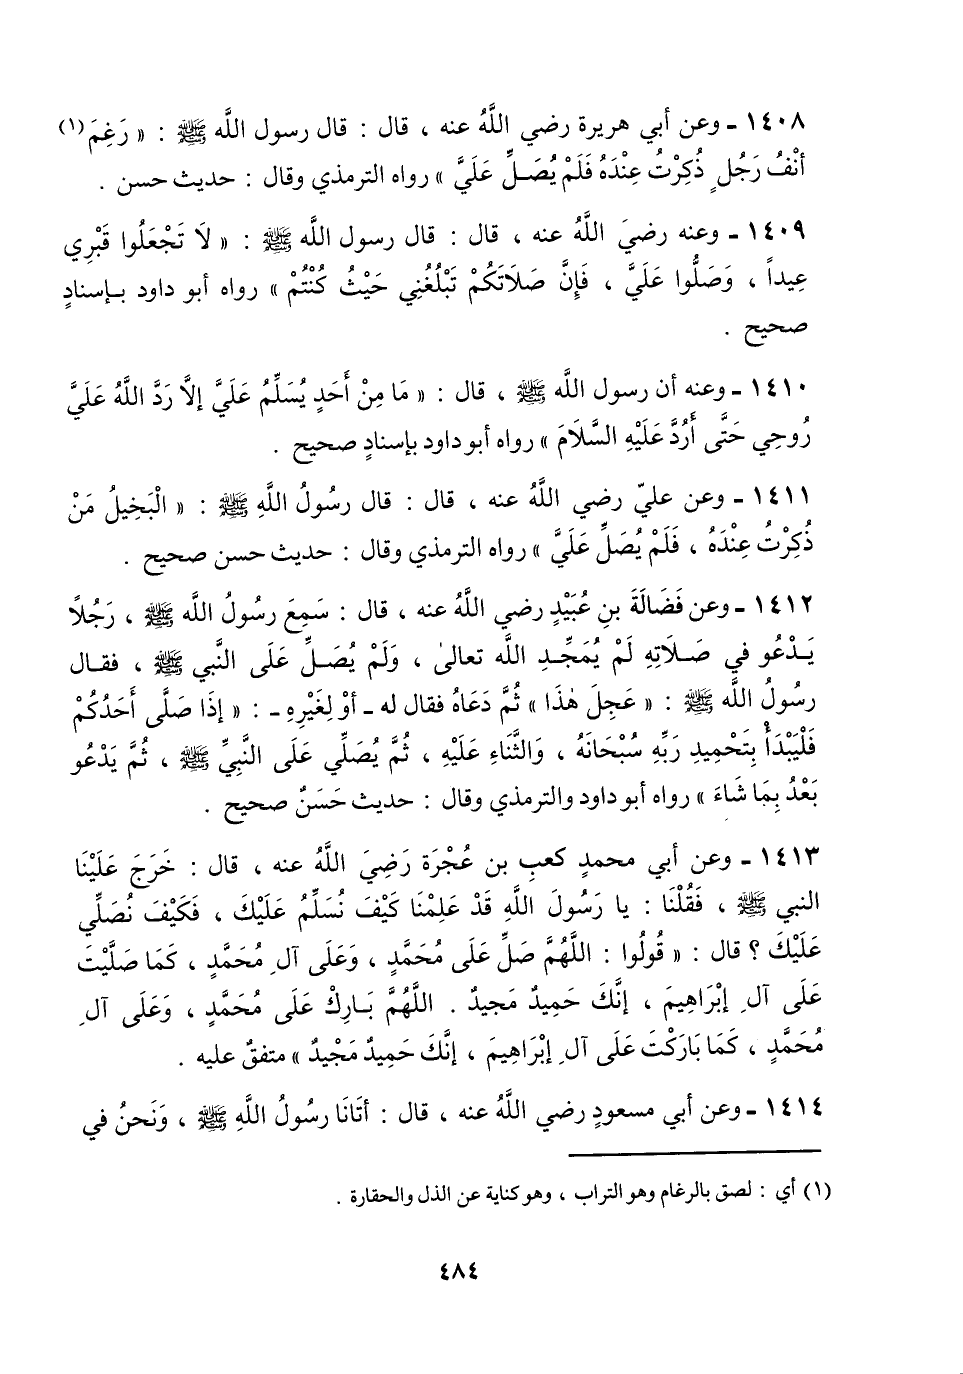 ١٤٠٨ ـ وعن أبي هريرة رضي اللَّهُ عنه ، قال : قال رسول اللَّه ﷺ : « رَغِمَ(١)
أنْفُ رَجُلٍ ذُكِرْتُ عِنْدَهُ فَلَمْ يُصَلِّ عَلَيَّ » رواه الترمذي وقال : حديث حسن .
١٤٠٩ ـ وعنه رضيَ اللَّهُ عنه ، قال : قال رسول اللَّه ﷺ : « لاَ تَجْعَلُوا قَبْرِي
عِيداً ، وَصَلُّوا عَلَيَّ ، فَإِنَّ صَلاَتَكُمْ تَبْلُغُنِي حَيْثُ كُنْتُمْ » رواه أبو داود بـإسنادٍ
صحيح .
١٤١٠ ـ وعنه أن رسول اللَّه ﷺ ، قال : « مَا مِنْ أَحَدٍ يُسَلِّمُ عَلَيَّ إلاَّ رَدَّ اللَّهُ عَلَيَّ
رُوحِي حَتَّى أَرُدَّ عَلَيْهِ السَّلاَمَ » رواه أبو داود بإسنادٍ صحيح .
١٤١١ ـ وعن عليّ رضي اللَّهُ عنه ، قال : قال رسُولُ اللَّهِ ﷺ : « الْبَخِيلُ مَنْ
ذُكِرْتُ عِنْدَهُ ، فَلَمْ يُصَلِّ عَلَيَّ » رواه الترمذي وقال : حديث حسن صحيح .
١٤١٢ ـ وعن فَضَالَةَ بنِ عُبَيْدٍ رضي اللَّهُ عنه ، قال : سَمِعَ رسُولُ اللَّه ﷺ ، رَجُلاً
يَـدْعُو في صَـلاتِهِ لَمْ يُمَجِّـدِ اللَّه تعالىٰ ، وَلَمْ يُصَـلِّ عَلَى النَّبي ﷺ ، فقـال
رسُولُ اللَّه ﷺ : « عَجِلَ هٰذَا » ثُمَّ دَعَاهُ فقال له ـ أوْ لِغَيْرِهِ ـ : « إذَا صَلَّى أَحَدُكُمْ
فَلْيَبْدَأْ بِتَحْمِيدِ رَبِّهِ سُبْحَانَهُ ، وَالثَّنَاءِ عَلَيْهِ ، ثُمَّ يُصَلِّي عَلَى النَّبِيِّ ﷺ ، ثُمَّ يَدْعُو
بَعْدُ بِمَا شَاءَ » رواه أبو داود والترمذي وقال : حديث حَسَنٌ صحيح .
١٤١٣ ـ وعن أبي محمدٍ كعبِ بن عُجْرَة رَضِيَ اللَّهُ عنه ، قال : خَرَجَ عَلَيْنَا
النبي ﷺ ، فَقُلْنَا : يا رَسُولَ اللَّهِ قَدْ عَلِمْنَا كَيْفَ نُسَلِّمُ عَلَيْكَ ، فَكَيْفَ نُصَلِّي
عَلَيْكَ ؟ قال : « قُولُوا : اللَّهُمَّ صَلِّ عَلَى مُحَمَّدٍ ، وَعَلَى آلِ مُحَمَّدٍ ، كَمَا صَلَّيْتَ
عَلَى آلِ إبْرَاهِيمَ ، إنَّكَ حَمِيدٌ مَجيدٌ . اللَّهُمَّ بَـارِكْ عَلَى مُحَمَّدٍ ، وَعَلَى آلِ
مُحَمَّدٍ ، كَمَا بَارَكْتَ عَلَى آلِ إبْرَاهِيمَ ، إنَّكَ حَمِيدٌ مَجْيدٌ » متفقٌ عليه .
١٤١٤ ـ وعن أبي مسعودٍ رضي اللَّهُ عنه ، قال : أتَانَا رسُولُ اللَّهِ ﷺ ، وَنَحنُ في
(١) أي : لصق بالرغام وهو التراب ، وهو كناية عن الذل والحقارة .
٤٨٤